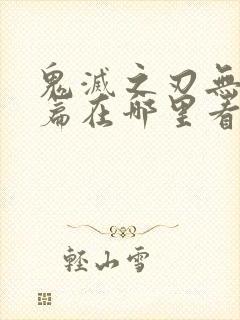 鬼滅之刃無
篇在哪里看
輕山雪